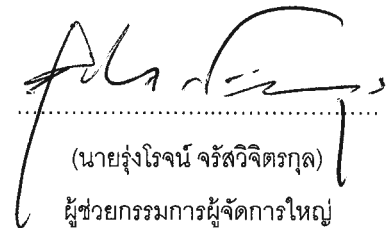 (นายรุ่งโรจน์ จรัสวิจิตรกุล)
ผู้ช่วยกรรมการผู้จัดการใหญ่